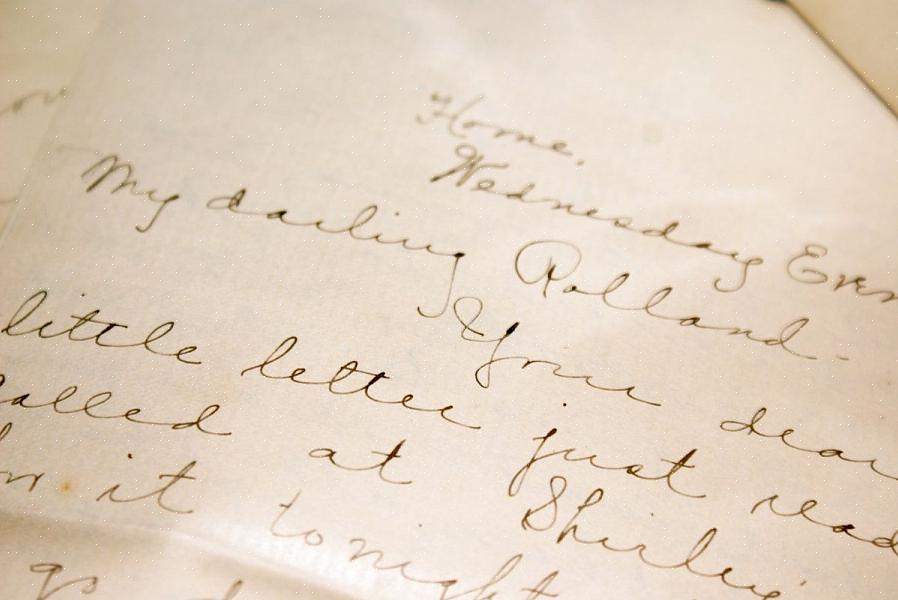 Home,
Wednesday Even
My darling Rolland-
Your dear
little letter just read
called at Shirley's
for it tonight
go